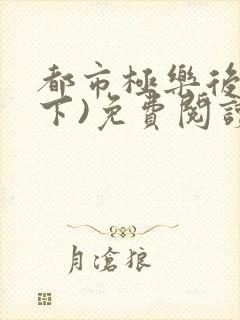 都市極樂後
下)免費閱讀
月滄狼